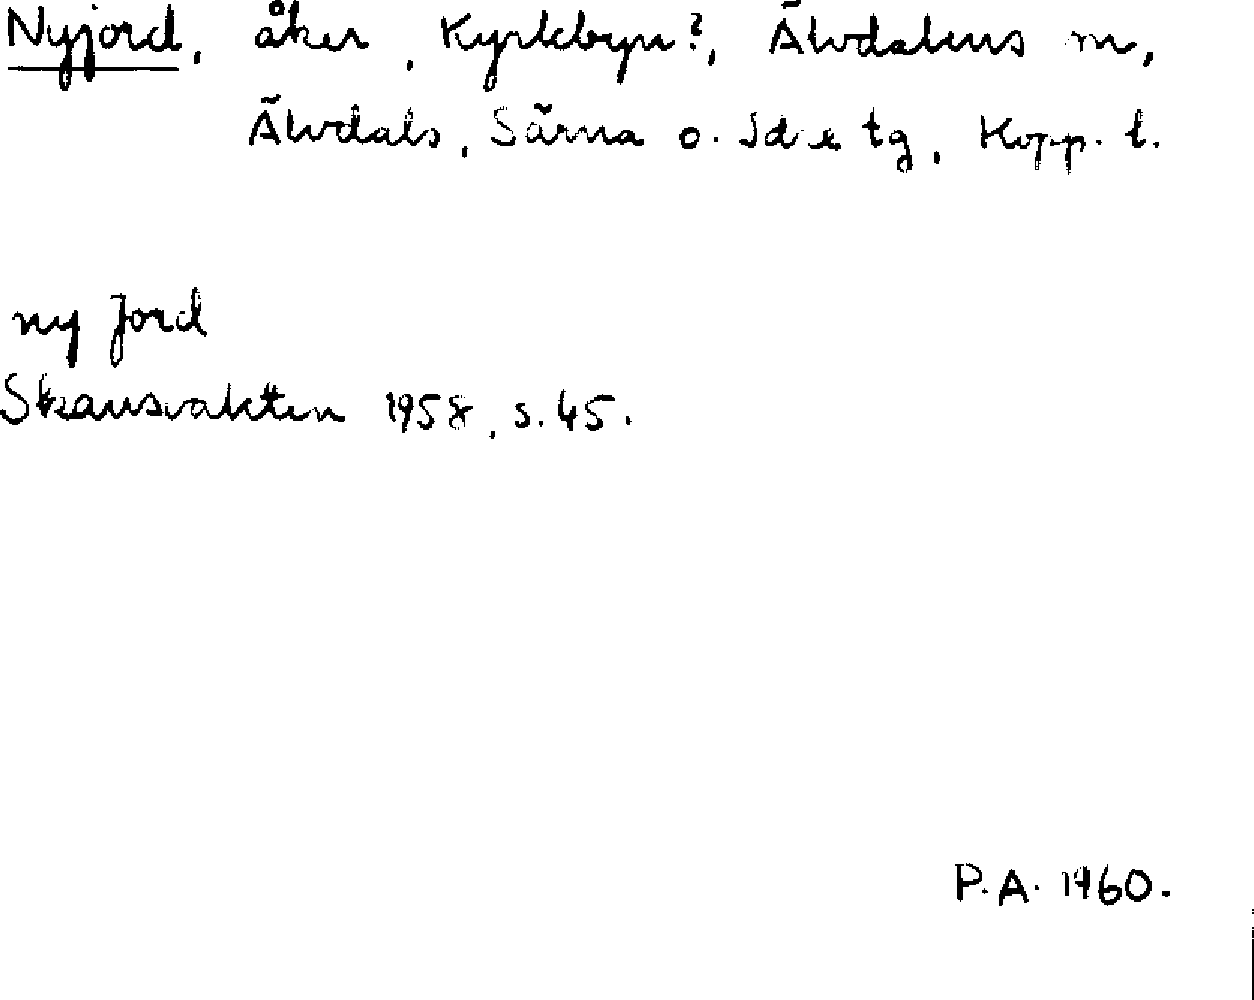 Nyjord, åker, Kyrkbyn?, Älvdalens m,
Älvdals, Särna o. Idre tg, Kopp. l.
ny jord
Skansvakten 1958, s. 45.
P.A. 1960.